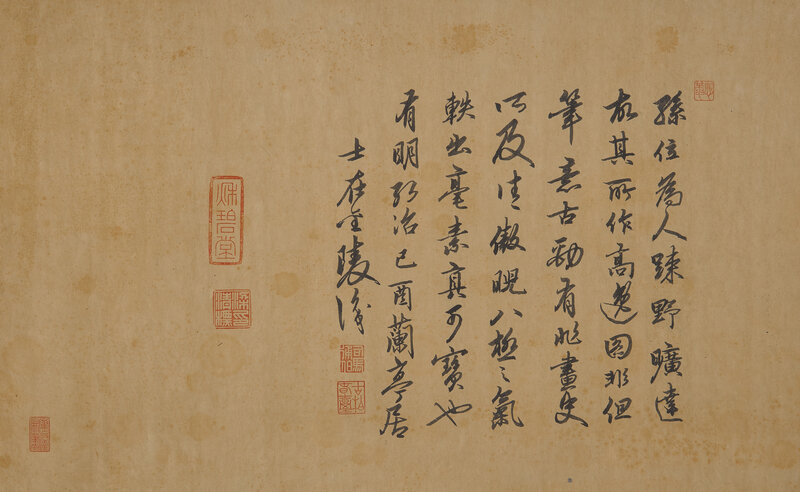 孫位為人踈野曠達
故其所作高逸固非但
筆意古勁有非畫史
所及清傲睨八極之氣
軼出毫素真可寶也
有明弘治己酉蘭亭居
士在金陵識
秌碧堂